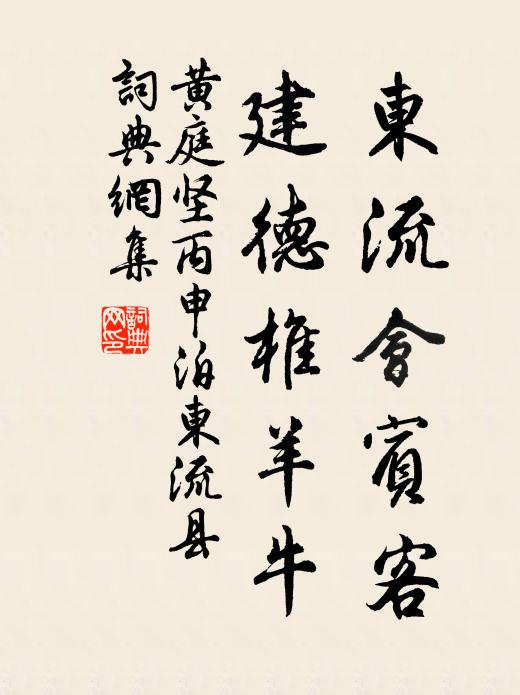 東流會賓客
建德椎羊牛
黄庭坚丙申泊東流县
詞典網集
詞典网印